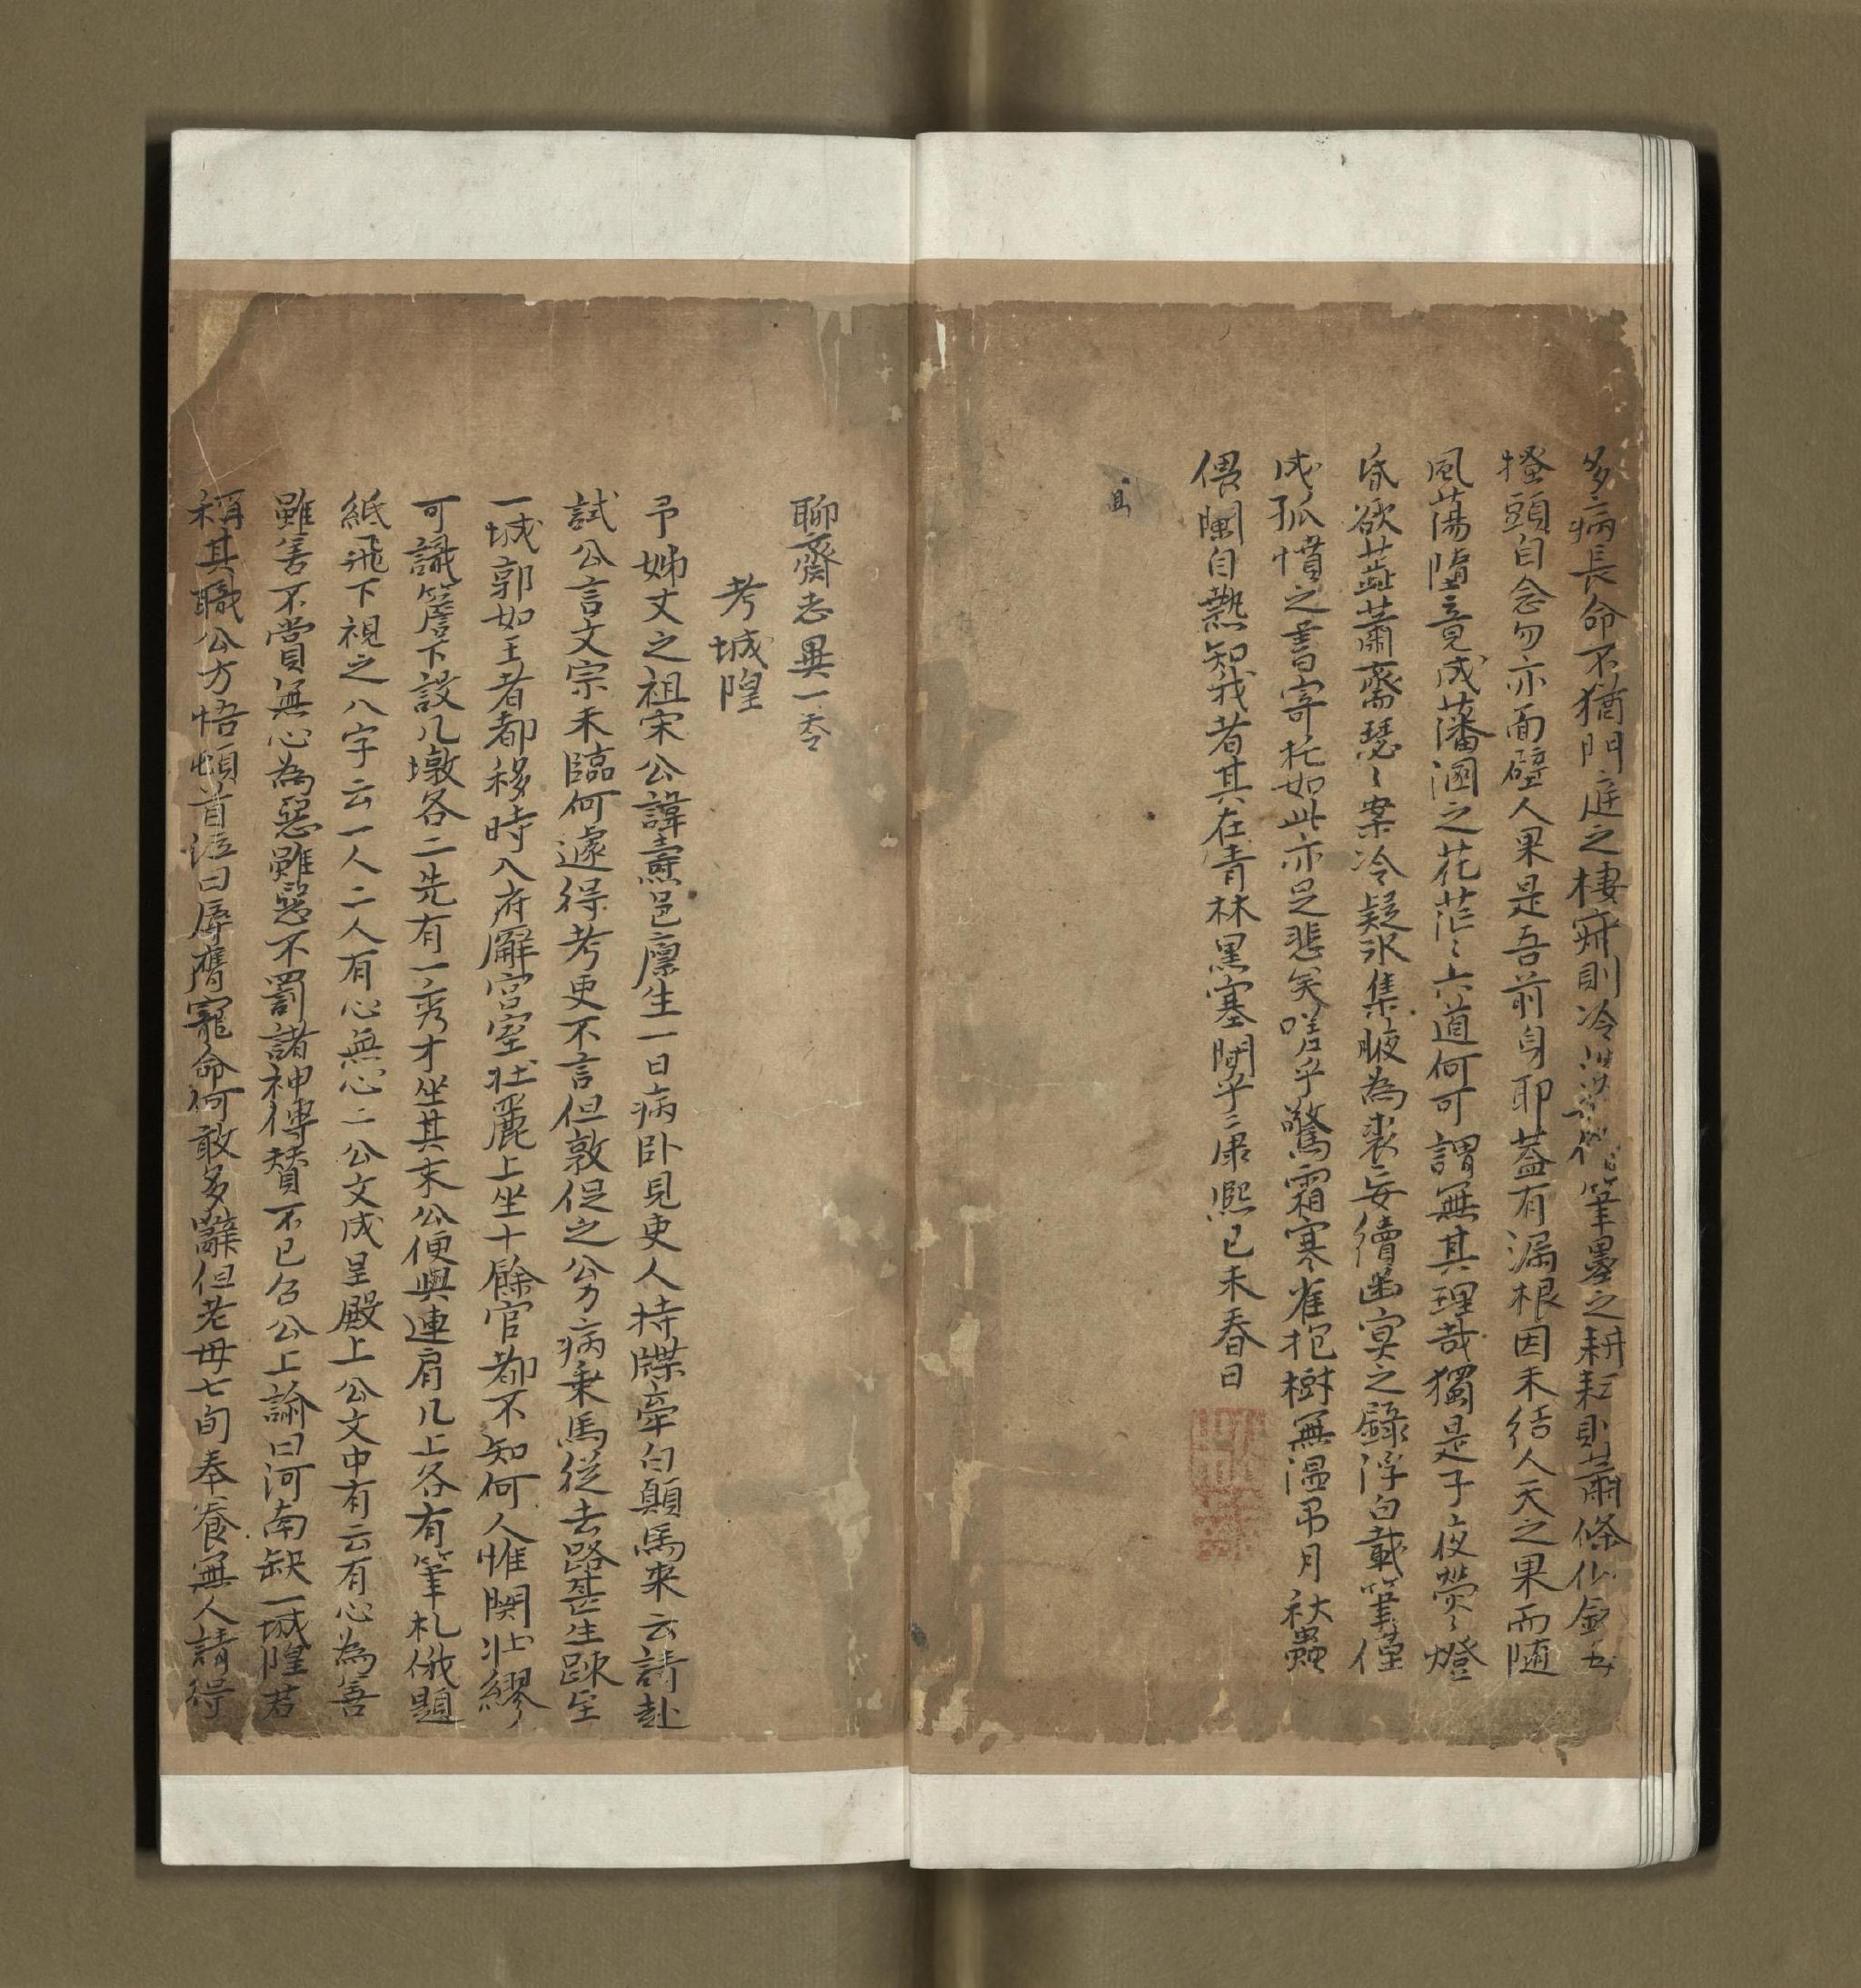 多病長命不猶門庭之棲寂則冷淡如僧筆墨之耕耘則蕭條似鉢每
搔頭自念勿亦面壁人果是吾前身耶蓋有漏根因未結人天之果而隨
風蕩墮竟成藩溷之花茫〻六道何可謂無其理哉獨是子夜熒〻燈
昏欲蕋蕭齋瑟〻案冷疑冰集腋為裘妄續幽冥之錄浮白載筆僅
成孤憤之書寄托如此亦足悲矣嗟乎驚霜寒雀抱樹無温弔月秋蟲
偎闌自熱知我者其在青林黑塞間乎康熙己未春日
聊齋志異一卷
考城隍
予姊丈之祖宋公諱燾邑廩生一日病卧見吏人持牒牽白顛馬来云請赴
試公言文宗未臨何遽得考吏不言但敦促之公力病乗馬從去路甚生疎至
一城郭如王者都移時入府廨宫室壮麗上坐十餘官都不知何人惟関壮繆
可識簷下設几墩各二先有一秀才坐其末公便與連肩几上各有筆札俄題
紙飛下視之八字云一人二人有心無心二公文成呈殿上公文中有云有心為善
雖善不賞無心為惡雖惡不罰諸神傳贊不已召公上諭曰河南缺一城隍君
稱其職公方悟頓首泣曰辱膺寵命何敢多辭但老母七旬奉養無人請得